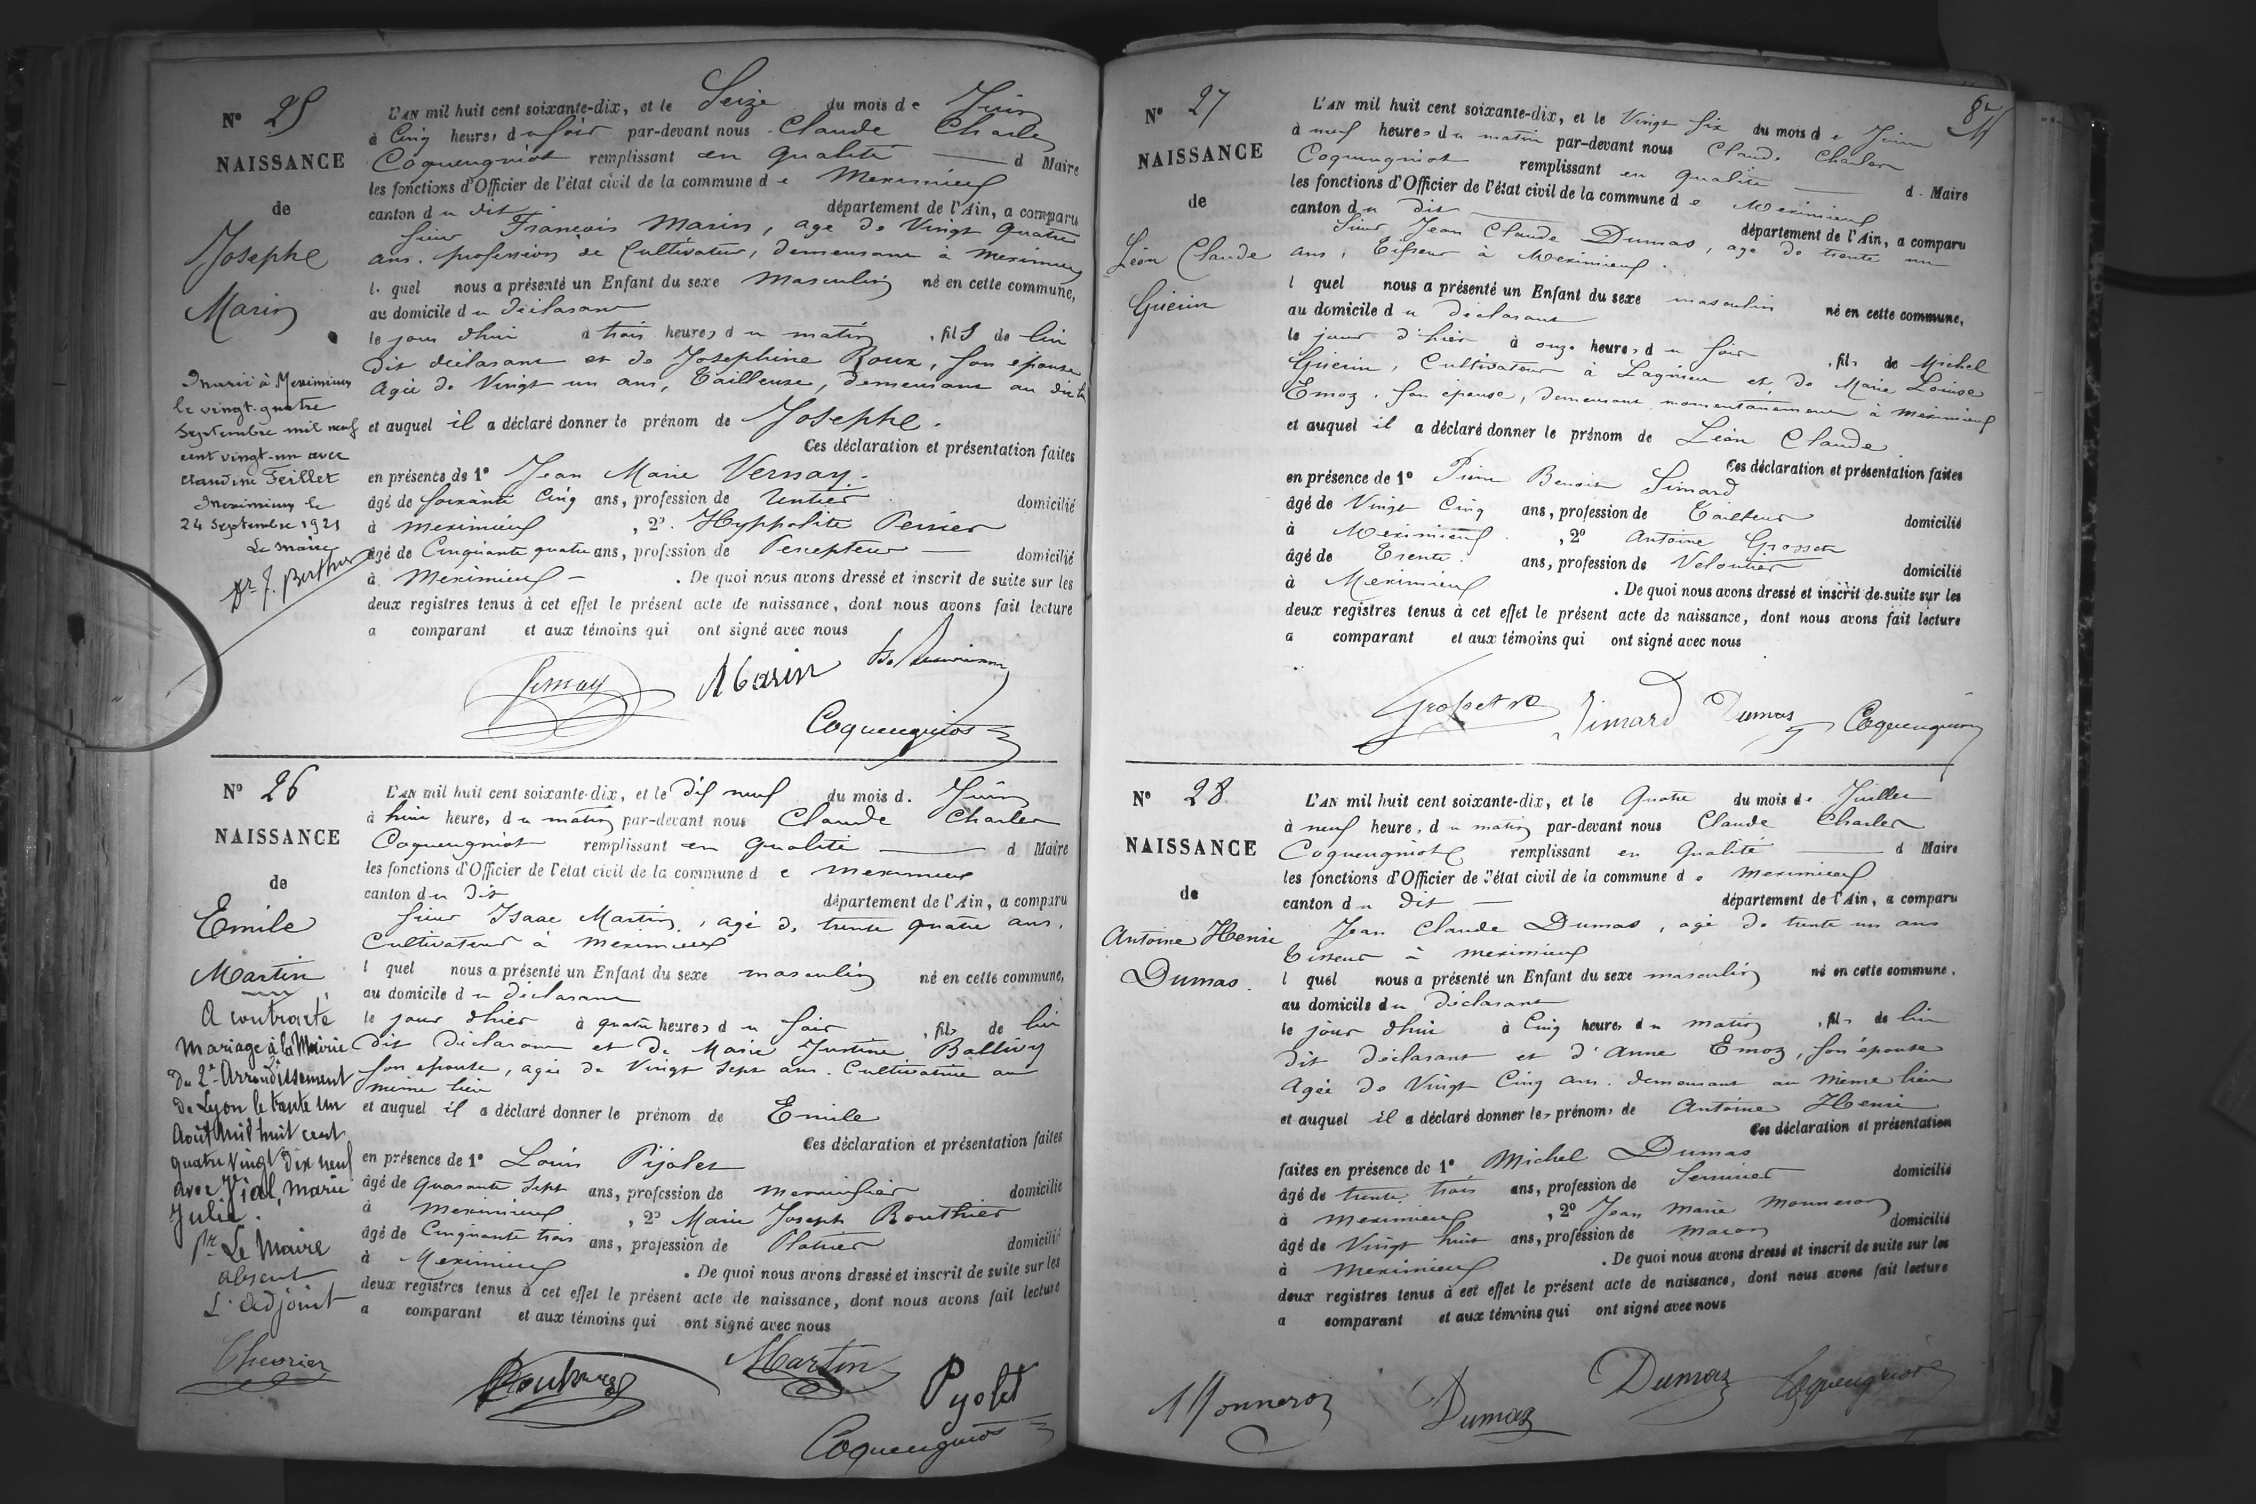 N° 25
NAISSANCE
de
Josephe
Marin
Marié à Meximieux
le vingt-quatre
Septembre mil neuf
cent vingt-un avec
Claudine Feillet
Meximieux le
24 Septembre 1921
Le Maire
L'AN mil huit cent soixante-dix, et le Seize du mois de Juin
à Cinq heures du soir par-devant nous Claude Charles
Coquengniot remplissant en qualité d Maire
les fonctions d'Officier de l'état civil de la commune de Meximieux
canton du dit département de l'Ain, a comparu
Sieur François Marin, agé de Vingt quatre
ans. profession de Cultivateur, demeurant à Meximieux
l quel nous a présenté un Enfant du sexe masculin né en cette commune,
au domicile du déclarant
le jour dhui à trois heures du matin, fils de lui
dit déclarant et de Josephine Roux, son épouse
agée de Vingt un ans, Tailleuse, demeurant au dit
et auquel il a déclaré donner le prénom de Josephe.
Ces déclaration et présentation faites
en présence de 1° Jean Marie Vernay.
âgé de soixante Cinq ans, profession de Rentier domicilié
à Meximieux, 2° Hyppolite Perrier
âgé de Cinquante quatre ans, profession de Percepteur domicilié
à Meximieux. De quoi nous avons dressé et inscrit de suite sur les
deux registres tenus à cet effet le présent acte de naissance, dont nous avons fait lecture
a comparant et aux témoins qui ont signé avec nous
Vernay Marin
Coquengniot
N° 26
NAISSANCE
de
Emile
Martin
A contracté
Mariage à la Mairie
du 2e Arrondissement
de Lyon le trente un
Août mil huit cent
quatre vingt dix neuf
avec Vial, Marie
Julie.
Pr Le Maire
absent
L'adjoint
Chevrier
L'AN mil huit cent soixante-dix, et le dix neuf du mois d. Juin
à huit heures du matin par-devant nous Claude Charles
Coquengniot remplissant en qualité d Maire
les fonctions d'Officier de l'état civil de la commune de Meximieux
canton du dit département de l'Ain, a comparu
Sieur Isaac Martin, agé de trente quatre ans,
Cultivateur à Meximieux
l quel nous a présenté un Enfant du sexe masculin né en cette commune,
au domicile du déclarant
le jour dhier à quatre heures du soir, fils de lui
dit déclarant et de Marie Justine Ballivy
son épouse, agée de Vingt sept ans. Cultivatrice au
même lieu
et auquel il a déclaré donner le prénom de Emile
Ces déclaration et présentation faites
en présence de 1° Louis Pijolet
âgé de quarante sept ans, profession de menuisier domicilié
à Meximieux, 2° Marie Joseph Bouthier
âgé de Cinquante trois ans, profession de Platrier domicilié
à Meximieux. De quoi nous avons dressé et inscrit de suite sur les
deux registres tenus à cet effet le présent acte de naissance, dont nous avons fait lecture
a comparant et aux témoins qui ont signé avec nous
Martin
Pyolet
Coquengniot
N° 27
NAISSANCE
de
Léon Claude
Guérin
L'AN mil huit cent soixante-dix, et le Vingt six du mois de Juin
à neuf heures du matin par-devant nous Claude Charles
Coquengniot remplissant en qualité d Maire
les fonctions d'Officier de l'état civil de la commune de Meximieux
canton du dit département de l'Ain, a comparu
Sieur Jean Claude Dumas, agé de trente un
ans, Tisseur à Meximieux.
l quel nous a présenté un Enfant du sexe masculin né en cette commune,
au domicile du déclarant
le jour d'hier à onze heures du soir, fils de Michel
Guérin, Cultivateur à Lagnieu et de Marie Louise
Emoz, son épouse, demeurant momentanement à Meximieux
et auquel il a déclaré donner le prénom de Léon Claude
Ces déclaration et présentation faites
en présence de 1° Pierre Benoit Simard
âgé de Vingt Cinq ans, profession de Tailleur domicilié
à Meximieux, 2° Antoine Grosset
âgé de Trente ans, profession de domicilié
à Meximieux. De quoi nous avons dressé et inscrit de suite sur les
deux registres tenus à cet effet le présent acte de naissance, dont nous avons fait lecture
a comparant et aux témoins qui ont signé avec nous
Simard Dumas Coquengniot
N° 28
NAISSANCE
de
Antoine Henri
Dumas.
L'AN mil huit cent soixante-dix, et le Quatre du mois de Juillet
à neuf heures du matin par-devant nous Claude Charles
Coquengniot remplissant en qualité d Maire
les fonctions d'Officier de l'état civil de la commune de Meximieux
canton du dit département de l'Ain, a comparu
Jean Claude Dumas, agé de trente un ans
Tisseur à Meximieux
l quel nous a présenté un Enfant du sexe masculin né en cette commune,
au domicile du déclarant
le jour dhui à Cinq heures du matin, fils de lui
dit déclarant et d'Anne Emoz, son épouse
agée de Vingt Cinq ans. demeurant au même lieu
et auquel il a déclaré donner les prénoms de Antoine Henri
Ces déclaration et présentation
faites en présence de 1° Michel Dumas
âgé de trente trois ans, profession de domicilié
à Meximieux, 2° Jean Marie Monneron
âgé de Vingt huit ans, profession de Maçon domicilié
à Meximieux. De quoi nous avons dressé et inscrit de suite sur les
deux registres tenus à cet effet le présent acte de naissance, dont nous avons fait lecture
a comparant et aux témoins qui ont signé avec nous
Monneron Dumas Dumas Coquengniot